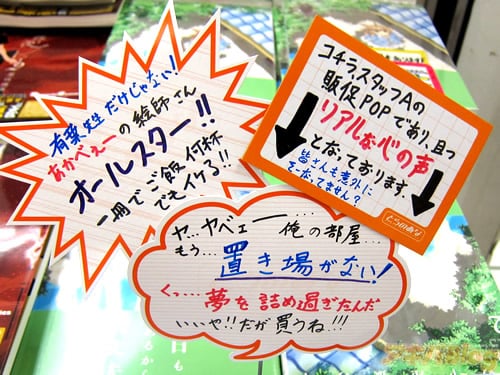 有葉先生だけじゃない!
あかべぇーの絵師さん
オールスター!!
一冊でご飯何杯
でもイケる!!
コチラ、スタッフAの
販促POPであり、且つ
リアルな心の声
となっております。
皆さんも意外に
そーなってません?
とらのあな
ヤ…ヤベェー…
俺の部屋…
もう…
置き場がない!
くっ…夢を詰め過ぎたんだ
いいや!!だが買うね!!!